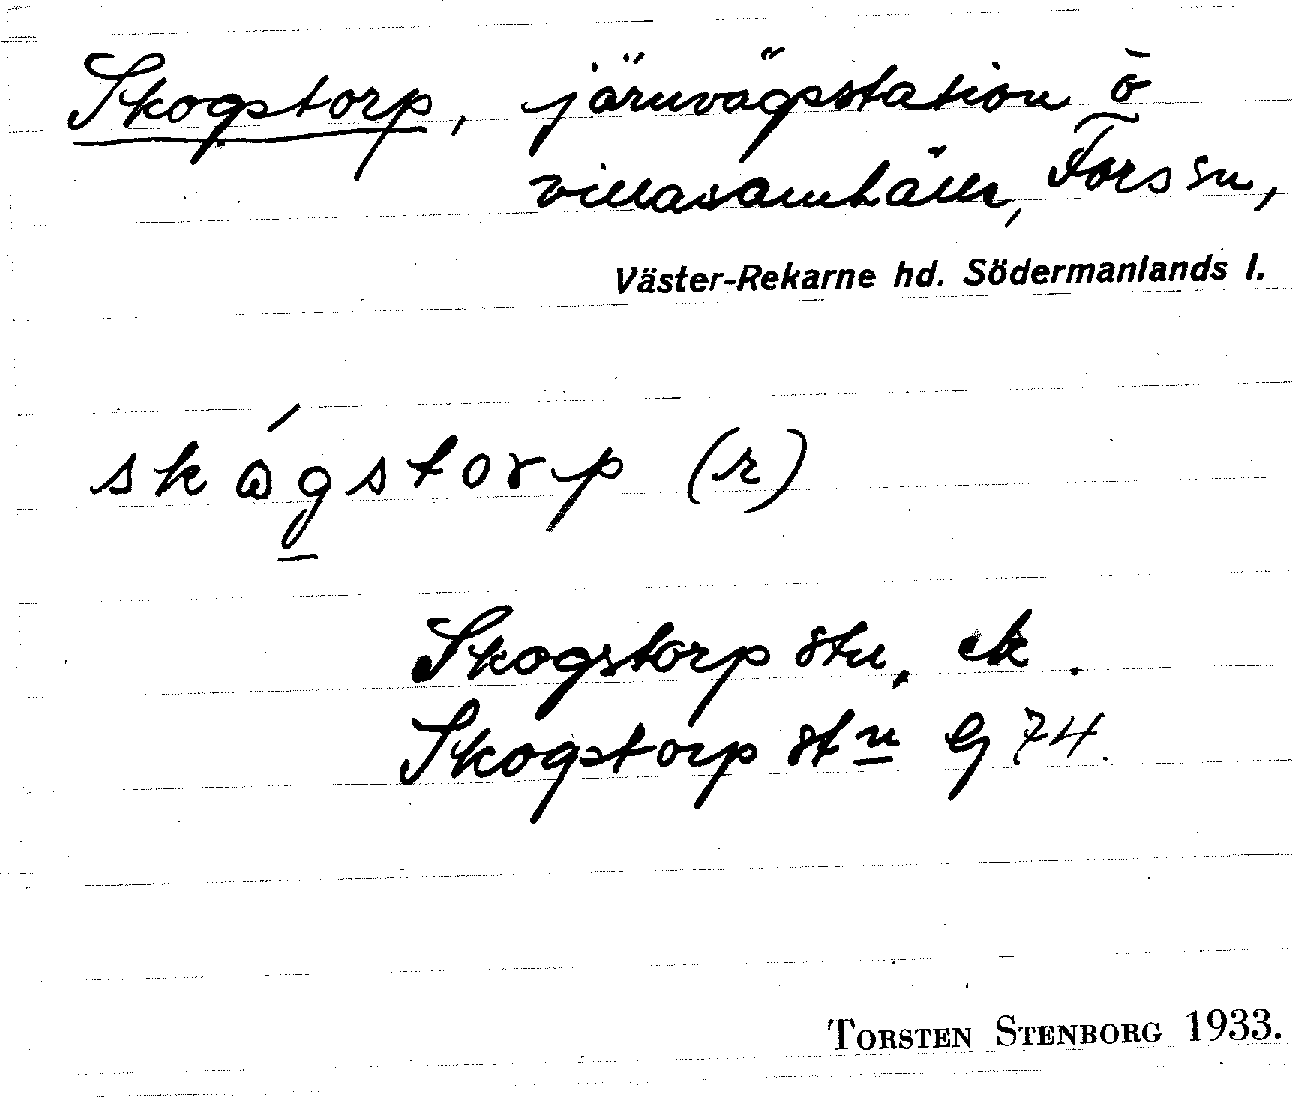 Skogstorp, järnvägsstation o
villasamhälle, Fors sn,
Väster-Rekarne hd. Södermanlands l.
skɷ́gstorp (r)
Skogstorp stn, ek.
Skogstorp stn G 74.
TORSTEN STENBORG 1933.